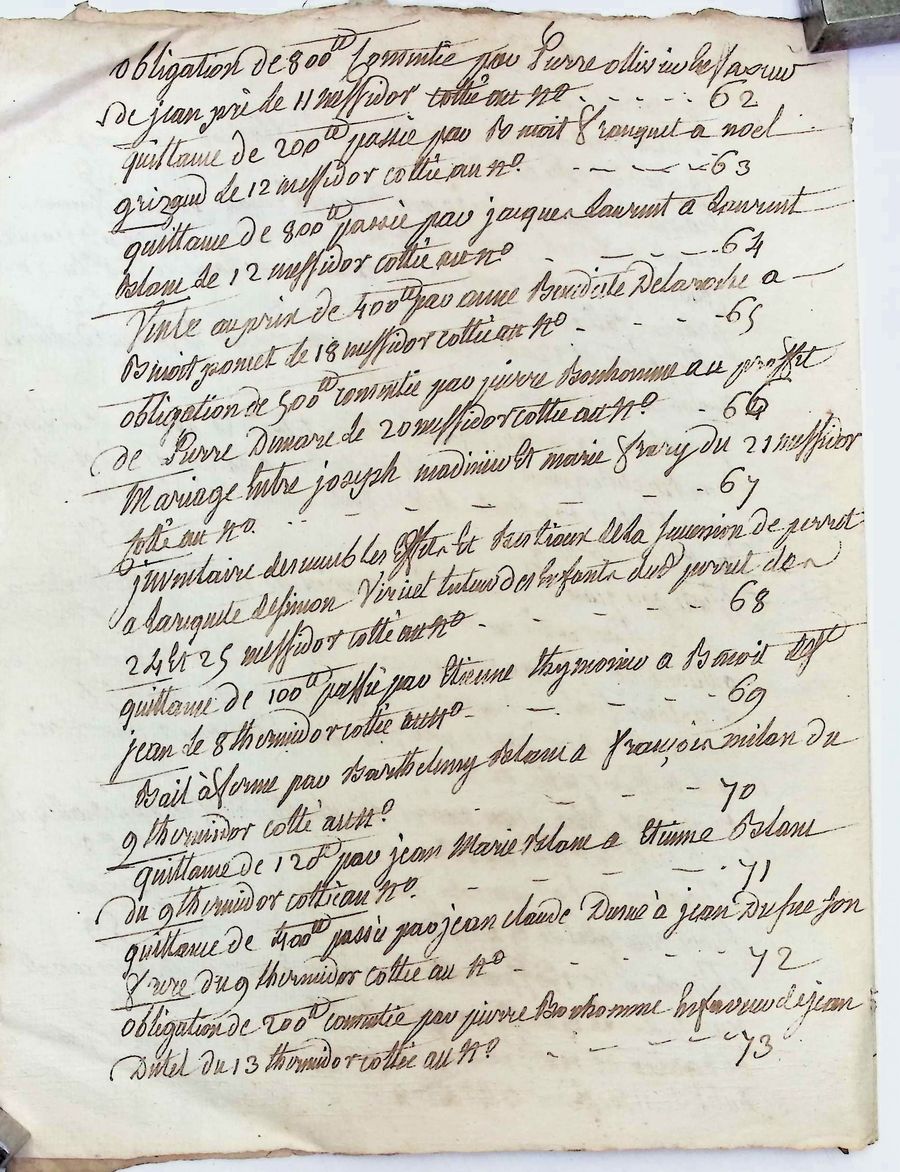 obligation de 800tt Consentie par Pierre ollivier En faveur
de jean pré le 11 messidor cottée au No - - - - - 62
quittance de 200tt passée par Benoit franquet a noel
grizaud le 12 messidor cottée au No. - - - - 63
quittance de 800tt passée par jacques Laurent a Laurent
Blanc le 12 messidor cottée au No - - - - 64
Vente au prix de 400tt par anne Benedicte Delaroche a
Benoit ponset le 18 messidor cottée au No - - - - 65
obligation de 500tt consentie par pierre Bonhomme au proffit
de Pierre Dumare le 20 messidor cottée au No - 66
Mariage Entre joseph madinier Et marie frary du 21 messidor
Cotté au No. - - - - - - - 67
jnventaire des meubles Effets Et Bestiaux de la succession de perret
a la requete de simon Viriet tuteur des Enfants dud perret des
24 Et 25 messidor cotté au No - - - - - 68
quittance de 100tt passée par Etienne thymonier a Benoit
jean le 8 thermidor cottée au No - - - - - 69
Bail à ferme par Barthelemy Blanc a françois milan du
9 thermidor cotté au No. - - - - 70
quittance de 120tt par jean Marie Blanc a Etienne Blanc
du 9 thermidor cottée au No. - - - - - 71
quittance de 400tt passée par jean claude Dumé à jean Dufne son
frere du 9 thermidor cottée au No - - - - - 72
obligation de 200tt consentie par pierre Bonhomme En faveur de jean
Dutel du 13 thermidor cottée au No - - - - 73